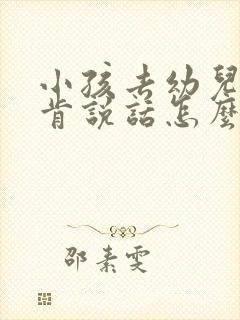 小孩去幼兒
肯說話怎麼
邵素雯